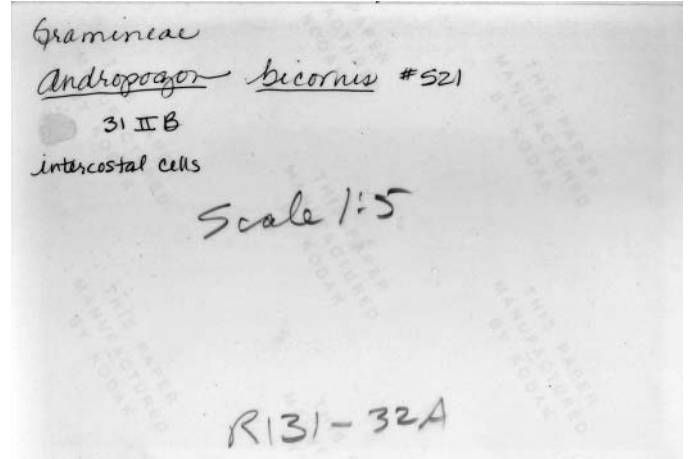 Gramineae
Andropogon bicornis #521
31 II B
intercostal cells
Scale 1:5
R131-32A
THIS PAPER
MANUFACTURED
BY KODAK